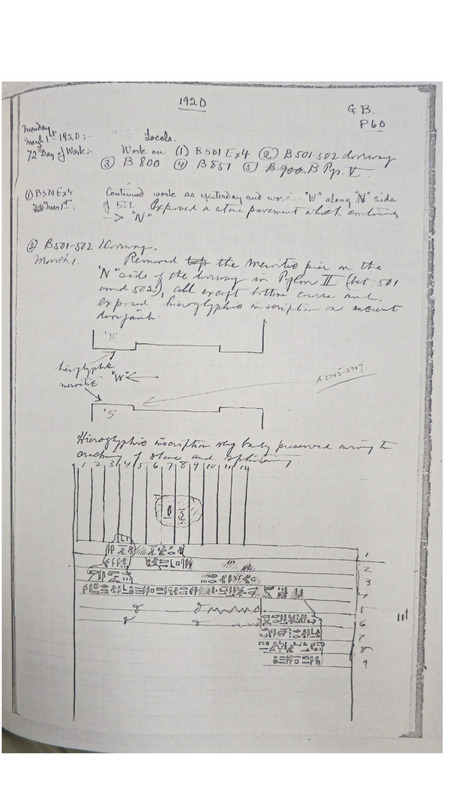 1920
G.B.
P60
Monday
March 1st 1920:-
72nd Day of Work:-
Locals.
Work on (1) B501 Ex4 (2) B501-502 doorway
(3) B800 (4) B851 (5) B900. B Pyr. V
(1) B501 Ex4
March 1st.
Continued work as yesterday and work "W" along "N" side
of 501. Exposed a stone pavement which continues
→ "N"
(2) B501-502 Doorway.
March 1.
Removed the Meroitic pier on the
"N" side of the doorway in Pylon II (bet. 501
and 502), all except bottom course and
exposed hieroglyphic inscription on ancient
door jamb.
"N"
hieroglyphic
meroitic
"W" ←
A2705-2707
"S"
Hieroglyphic inscription very badly preserved owing to
cracking of stone and splintering
1 2 3 4 5 6 7 8 9 10 11 12
1
2
3
4
5
6
7
8
9